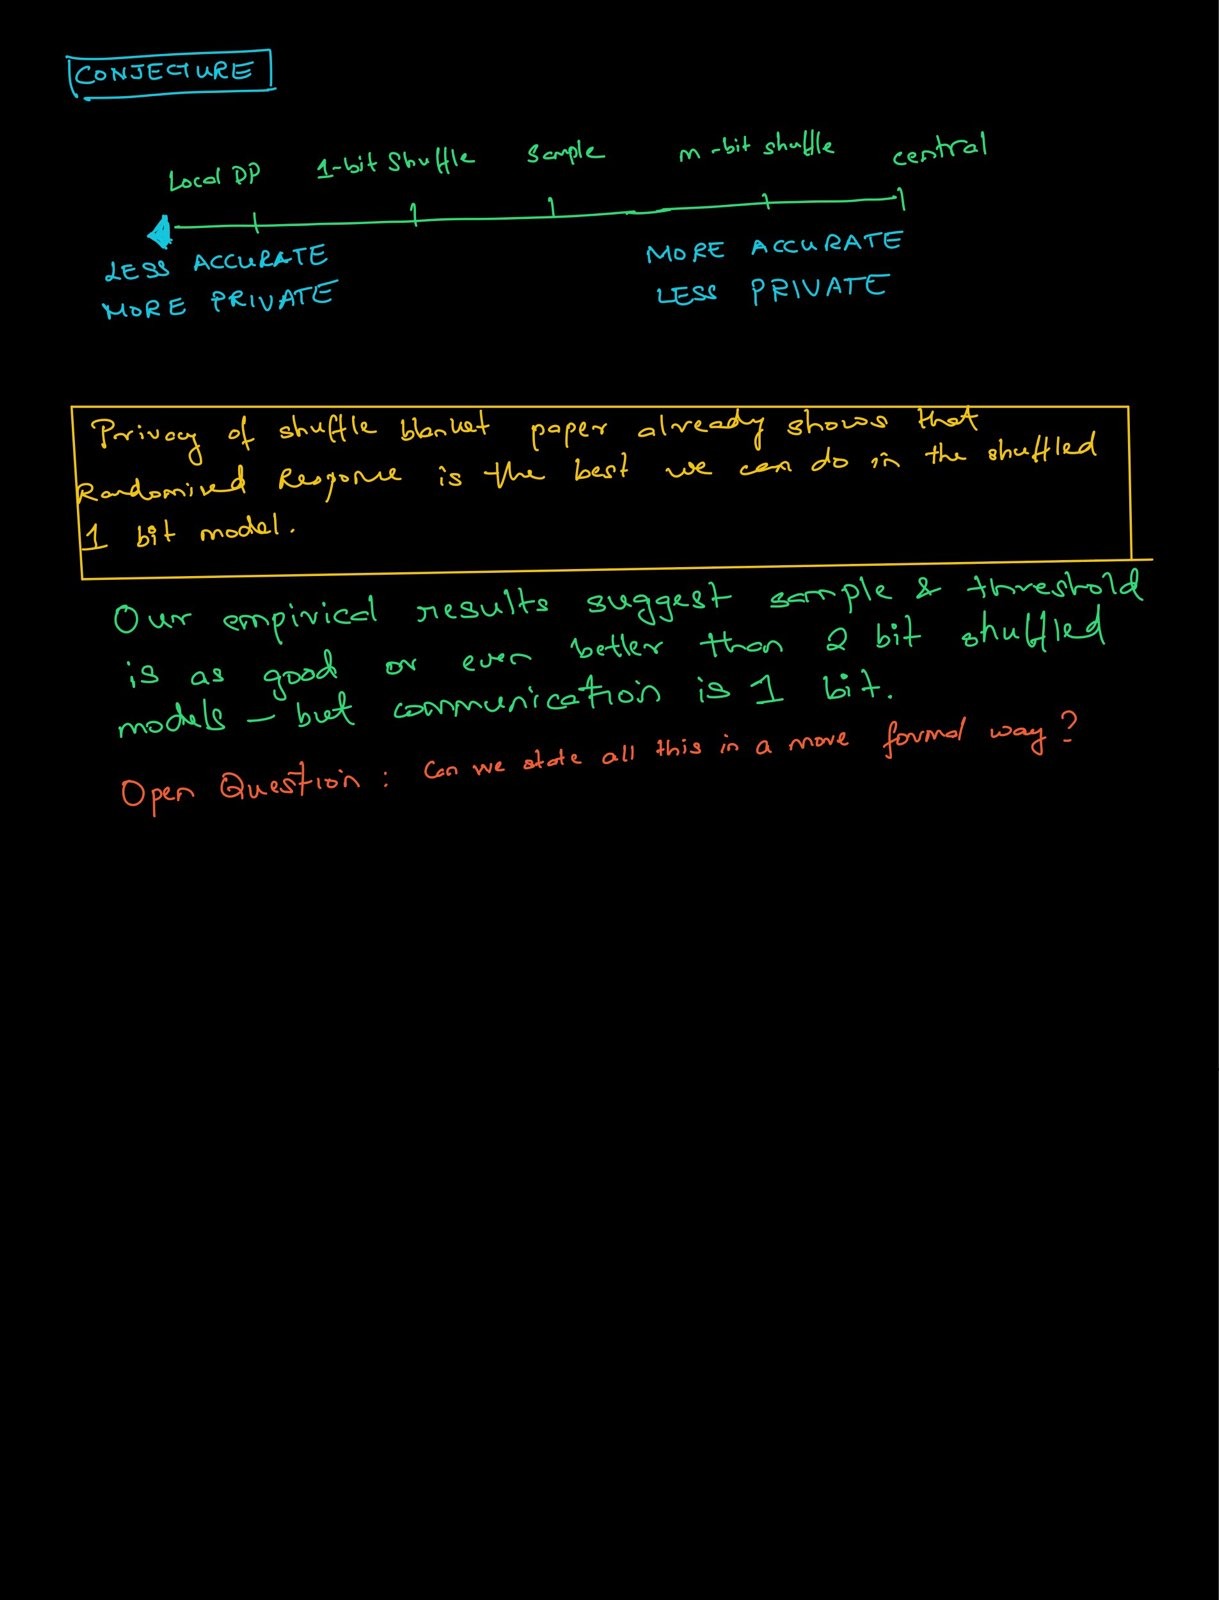 CONJECTURE
Local DP 1-bit Shuffle Sample m-bit shuffle central
LESS ACCURATE MORE ACCURATE
MORE PRIVATE LESS PRIVATE
Privacy of shuffle blanket paper already shows that
Randomised Response is the best we can do in the shuffled
1 bit model.
Our empirical results suggest sample & threshold
is as good or even better than 2 bit shuffled
models - but communication is 1 bit.
Open Question: Can we state all this in a more formal way?